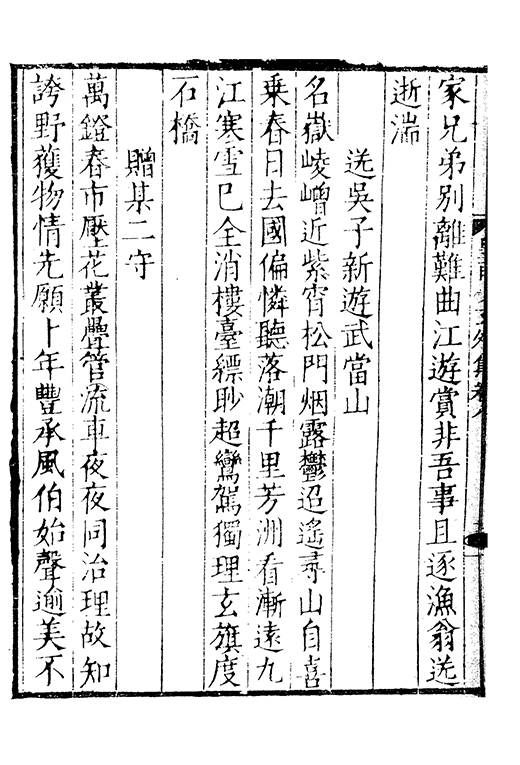 家兄弟別離難曲江遊賞非吾事且逐漁翁送
逝湍
送吳子新遊武當山
名嶽崚嶒近紫宵松門烟露鬱迢遙尋山自喜
乘春日去國偏憐聽落潮千里芳洲看漸遠九
江寒雪巳全消樓臺縹眇超鸞駕獨理玄旗度
石橋
贈某二守
萬鐙春市壓花叢疊管流車夜夜同治理故知
誇野蒦物情先願卜年豐承風伯始聲逾美不